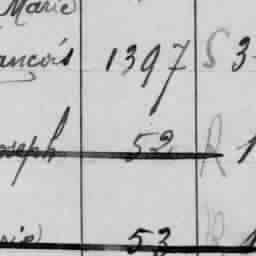 Marie
ançois 1397 S 3
oseph 52 R 1
rie 53 R 1